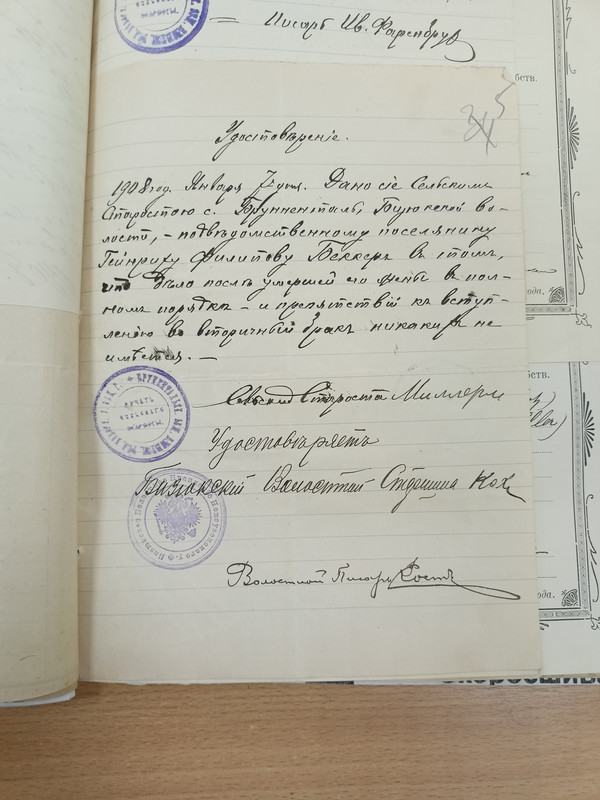 Писарь Ив. Фаренбрух
345
Удостовѣренiе.
1908 год. Января 7 дня. Дано сiе Сельскимъ
Старостою с. Брунненталь, Бизюкской во-
лости, – подвѣдомственному поселянину
Гейнриху Филипову Беккеръ въ томъ,
что дѣло послѣ умершей его жены въ пол-
номъ порядкѣ – и препятствiй къ вступ-
ленiю во вторичный бракъ никакихъ не
имѣется. —
Сельский Староста Миллеръ
Удостовѣряетъ
Бизюкскiй Волостной Старшина Кохъ
Волостной Писарь Ростъ
бств.
ода.
ода.